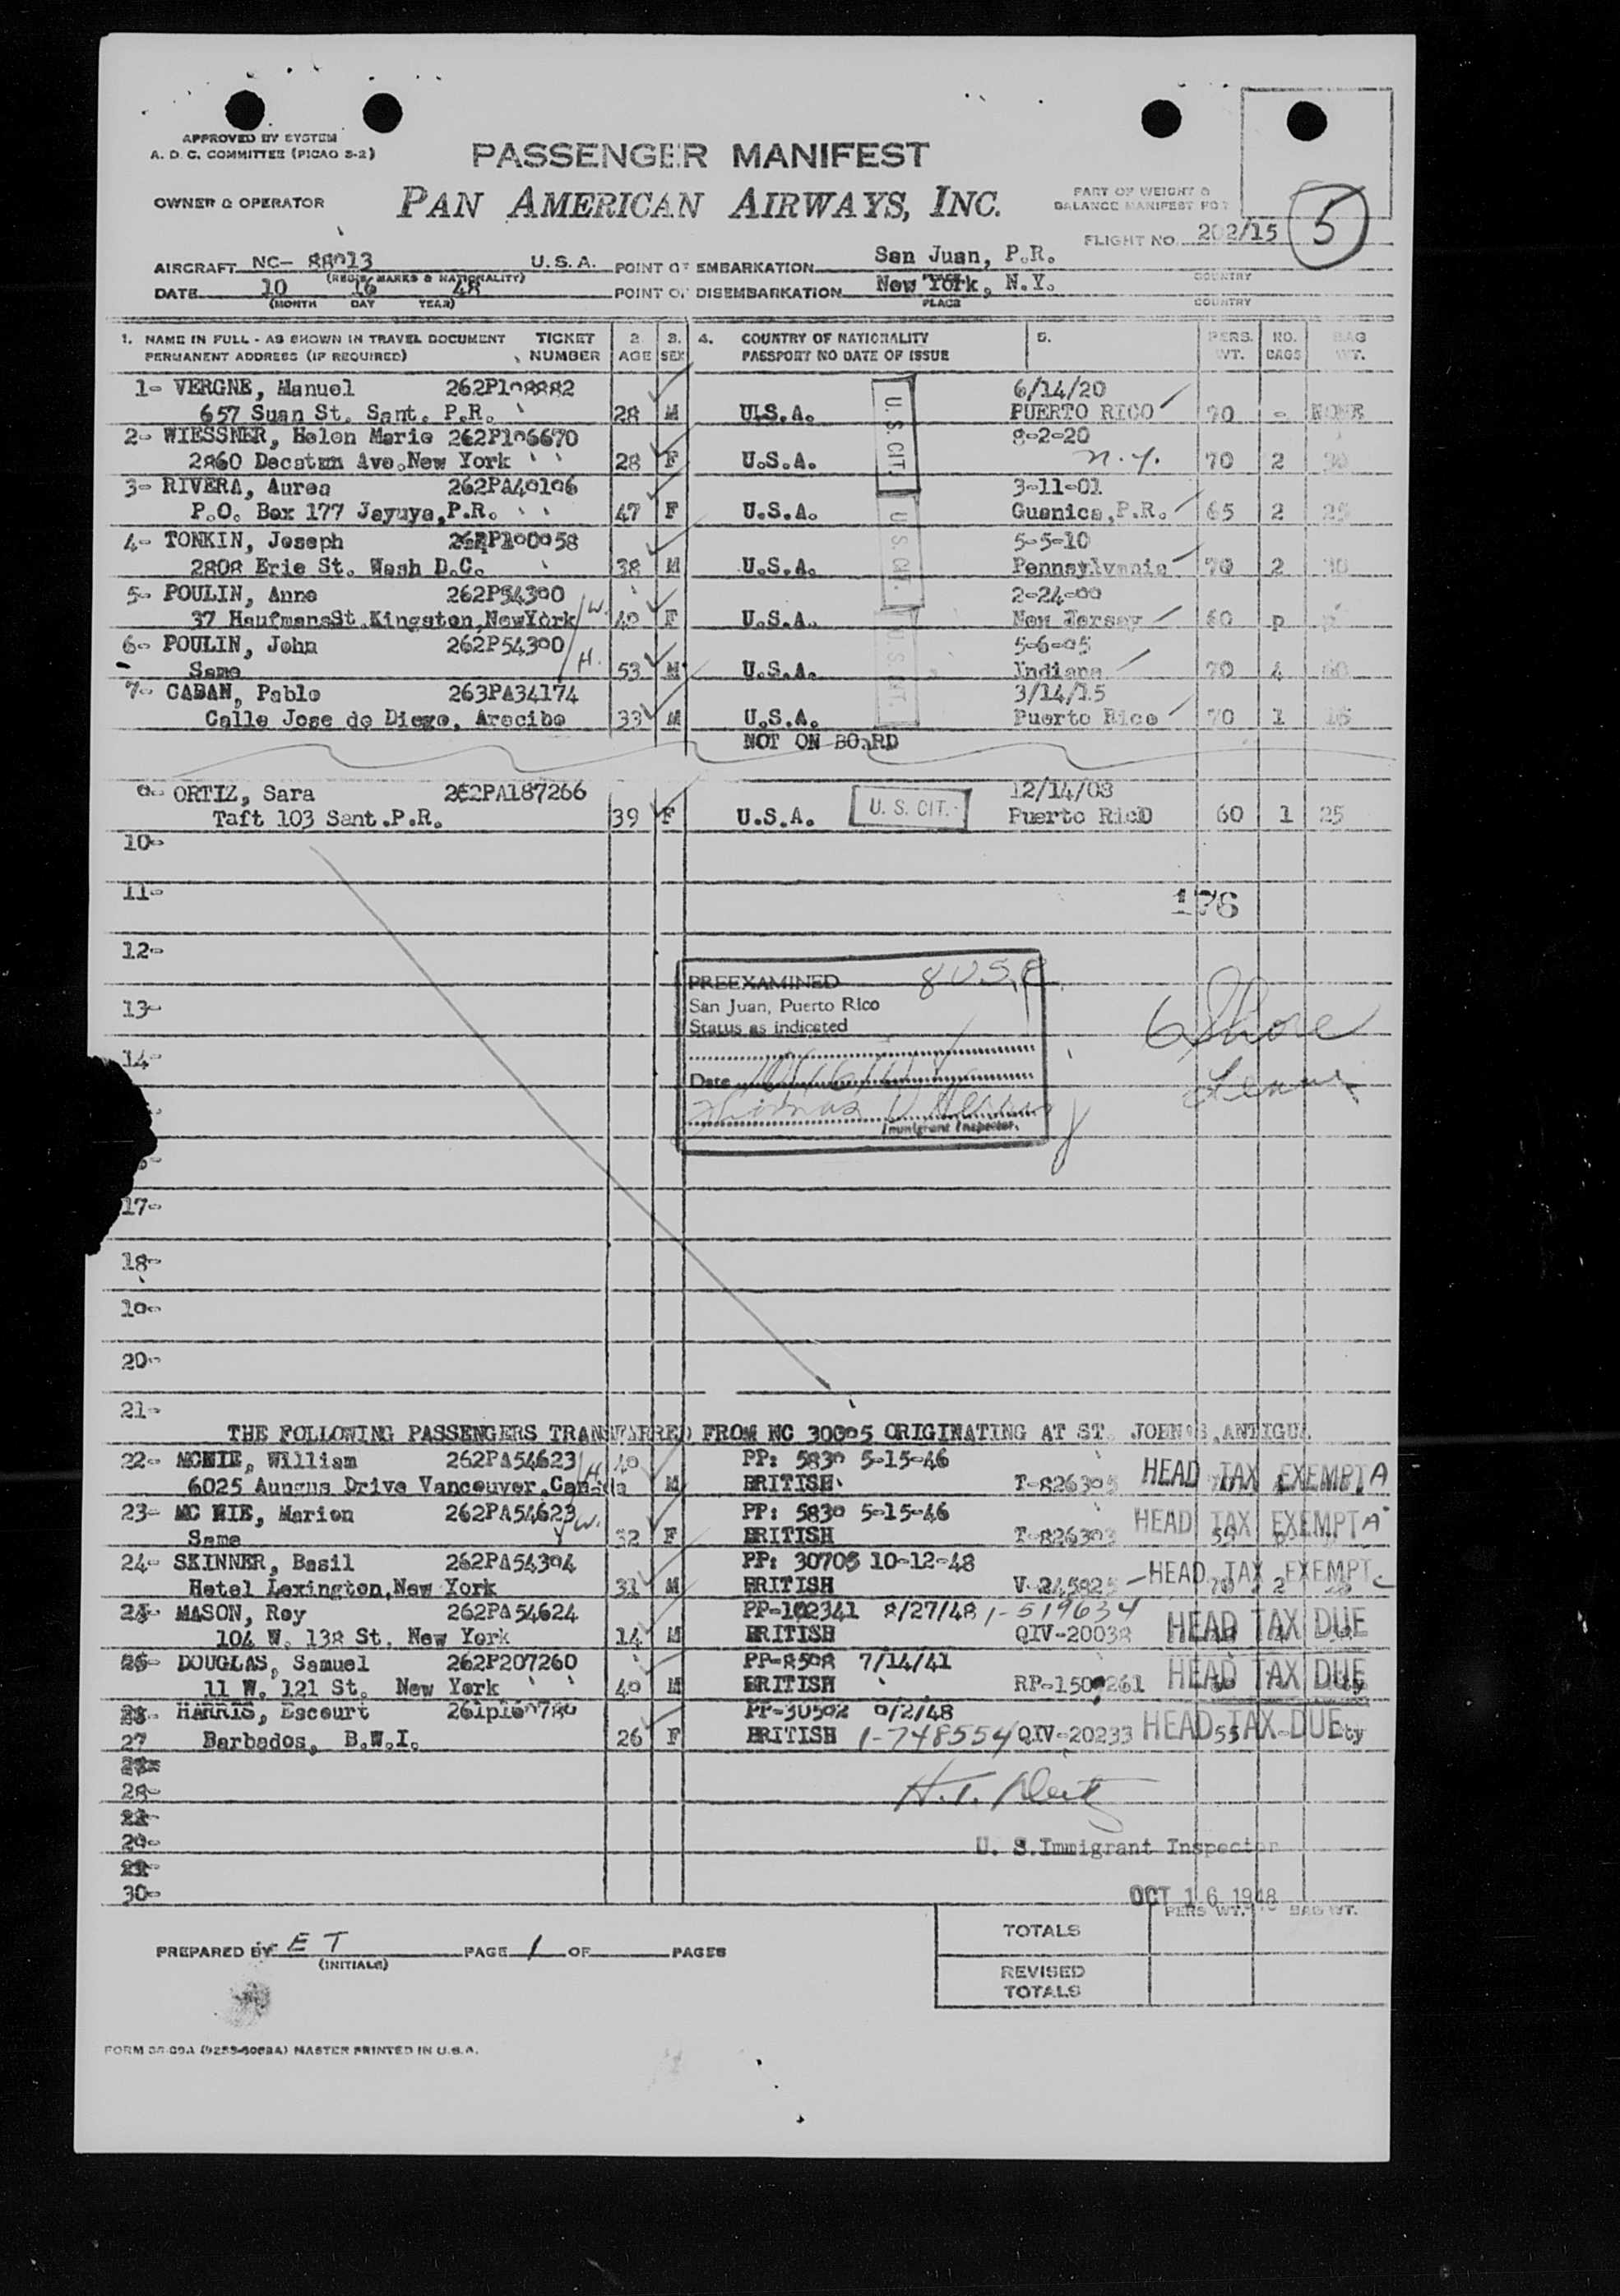 APPROVED BY SYSTEM
A. D. C. COMMITTEE (PICAO S-2)
PASSENGER MANIFEST
OWNER & OPERATOR
PAN AMERICAN AIRWAYS, INC.
PART OF WEIGHT &
BALANCE MANIFEST FOR
FLIGHT NO. 202/15
5
AIRCRAFT NC- 88013 U.S.A. POINT OF EMBARKATION San Juan, P.R.
(REGIS. MARKS & NATIONALITY) PLACE COUNTRY
DATE 10 16 48 POINT OF DISEMBARKATION New York, N.Y.
(MONTH DAY YEAR) PLACE COUNTRY
1. NAME IN FULL - AS SHOWN IN TRAVEL DOCUMENT TICKET 2. 3. 4. COUNTRY OF NATIONALITY 5. PERS. NO. BAG
PERMANENT ADDRESS (IF REQUIRED) NUMBER AGE SEX PASSPORT NO DATE OF ISSUE WT. BAGS WT.
1- VERGNE, Manuel 262P108882 6/14/20
657 Suan St. Sant. P.R. 28 M U.S.A. PUERTO RICO 70 - NONE
2- WIESSNER, Helen Marie 262P106670 8-2-20
2860 Decatun Ave. New York 28 F U.S.A. U.S. CIT. n.y. 70 2
3- RIVERA, Aurea 262PA40106 3-11-01
P.O. Box 177 Jayuya, P.R. 47 F U.S.A. Guanica, P.R. 65 2 25
4- TONKIN, Joseph 262P100058 5-5-10
2808 Erie St. Wash D.C. 38 M U.S.A. U.S. CIT. Pennsylvania 70 2
5- POULIN, Anne 262P54300 W. 2-24-00
37 HaufmansSt. Kingston, NewYork F U.S.A. New Jersey 60 p
6- POULIN, John 262P54300 H. 5-6-05
Same 53 M U.S.A. U.S. CIT. Indiana 70 4
7- CABAN, Pablo 263PA34174 3/14/15
Calle Jose de Diego, Arecibo 33 M U.S.A. Puerto Rico 70 1
NOT ON BOARD
9- ORTIZ, Sara 262PA187266 12/14/08
Taft 103 Sant. P.R. 39 F U.S.A. U. S. CIT. Puerto RicO 60 1 25
10-
11-
176
12-
PREEXAMINED 8 U.S.C.
San Juan, Puerto Rico
13-
Status as indicated
14-
Date
Immigrant Inspector.
17-
18-
19-
20-
21-
THE FOLLOWING PASSENGERS TRANSFARRED FROM NC 30005 ORIGINATING AT ST. JOHNS, ANTIGUA
22- MCNIE, William 262PA54623 H. 40 PP: 5830 5-15-46
6025 Aungus Drive Vancouver, Canada M BRITISH T-826305 HEAD TAX EXEMPT A
23- MC NIE, Marion 262PA54623 W. PP: 5830 5-15-46
Same 32 F BRITISH T-826303 HEAD TAX EXEMPT A
24- SKINNER, Basil 262PA54304 PP: 30705 10-12-48
Hotel Lexington, New York 31 M BRITISH V-245825 HEAD TAX EXEMPT C
MASON, Roy 262PA54624 PP-102341 8/27/48 1-519634
104 W. 138 St. New York 14 M BRITISH QIV-20038 HEAD TAX DUE
DOUGLAS, Samuel 262P207260 PP-8508 7/14/41
11 W. 121 St. New York 40 M BRITISH HEAD TAX DUE
HARRIS, Escourt 261p160780 PP-30502 9/2/48
27 Barbados, B.W.I. 26 F BRITISH 1-748554 QIV-20233 HEAD TAX DUE 55
28-
29-
30-
U. S. Immigrant Inspector
OCT 16 1948
PERS WT. BAG WT.
TOTALS
PREPARED BY E T PAGE 1 OF PAGES
(INITIALS)
REVISED
TOTALS
MASTER PRINTED IN U.S.A.